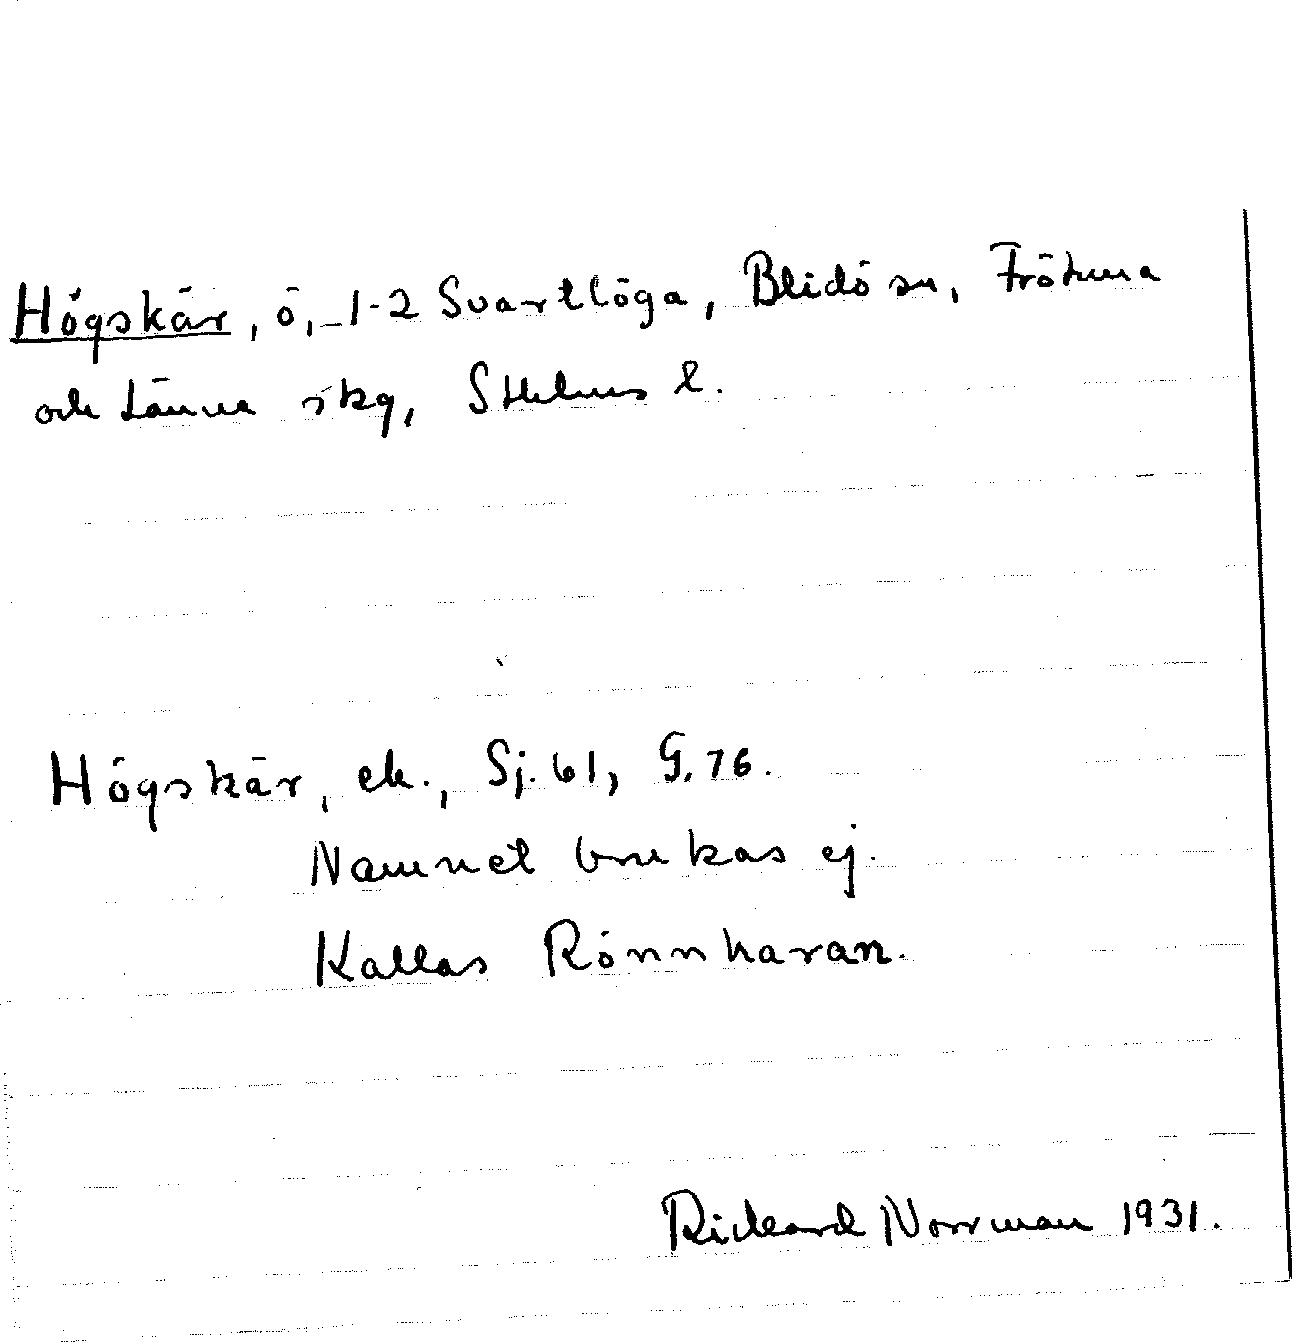 Högskär, ö, 1-2 Svartlöga, Blidö sn, Frötuna
och Länna skg, Sthlms l.
Högskär, ek., Sj. 61, G. 76.
Namnet brukas ej.
Kallas Rönnharan.
Rickard Norrman 1931.